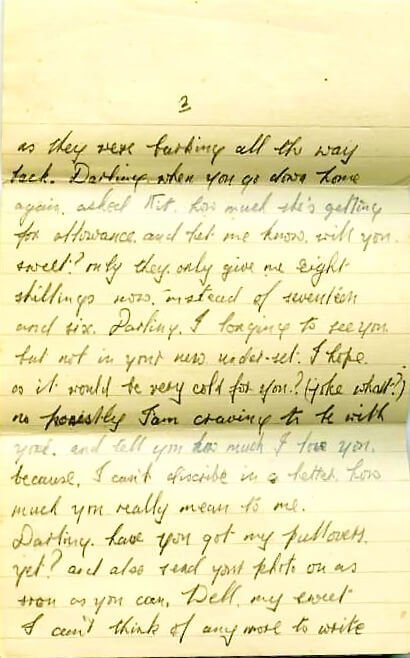 3
as they were barking all the way
back. Darling when you go down home
again. asked Kit. how much she's getting
for allowance. and let me know. will you.
sweet? only they only give me eight
shillings now. instead of seventeen
and six. Darling. I longing to see you
but not in your new under-set. I hope.
as it would be very cold for you.? (joke what?)
no honestly I am craving to be with
you. and tell you how much I love you.
because. I can't discribe in a letter. how
much you really mean to me.
Darling. have you got my pullovers.
yet? and also send your photo on as
soon as you can. Well. my sweet
I can't think of any more to write